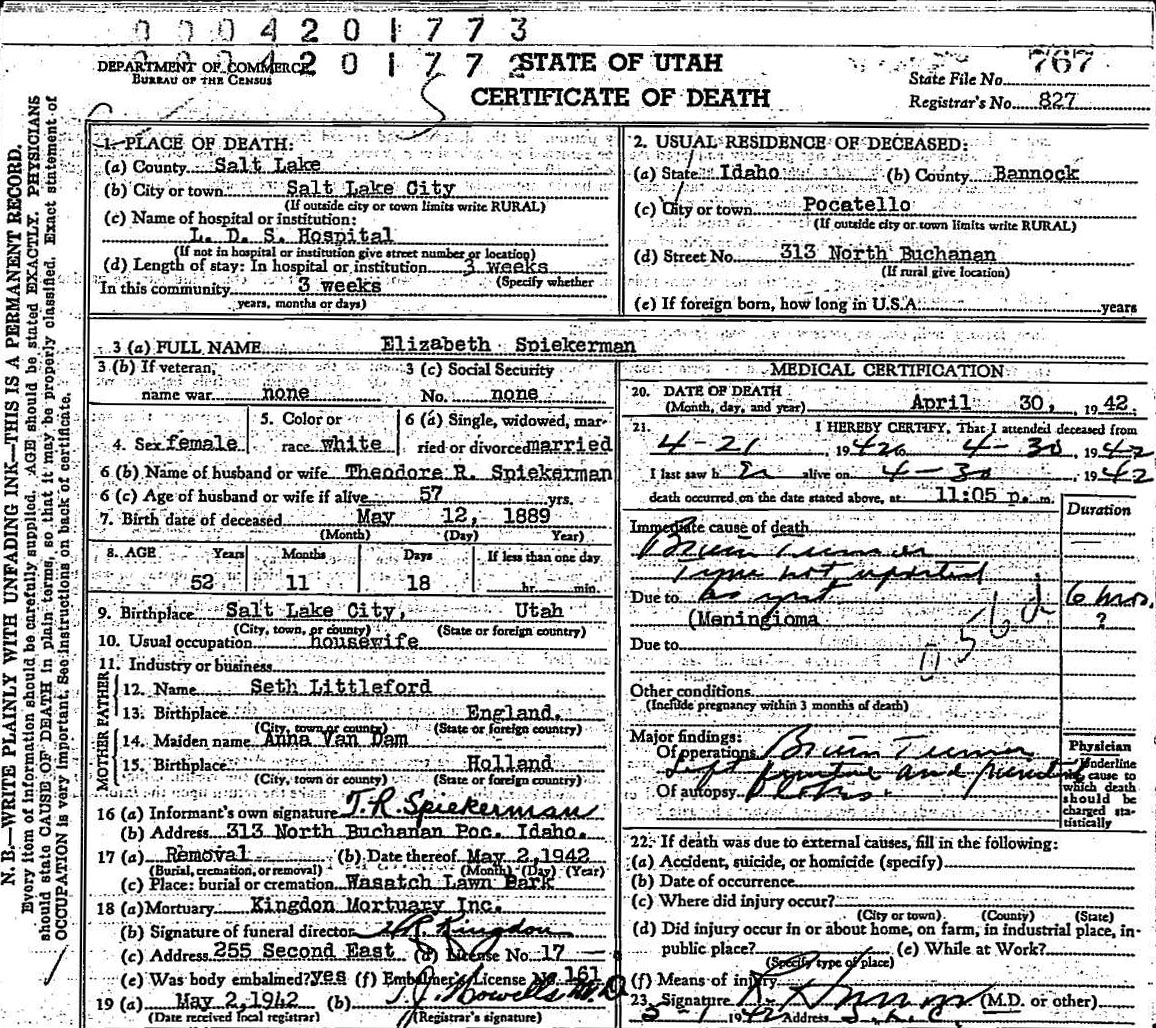 0 0 0 4 2 0 1 7 7 3
0 0 0 4 2 0 1 7 7 2
DEPARTMENT OF COMMERCE
BUREAU OF THE CENSUS
STATE OF UTAH
CERTIFICATE OF DEATH
State File No. 767
Registrar's No. 827
N. B.—WRITE PLAINLY WITH UNFADING INK—THIS IS A PERMANENT RECORD.
Every item of information should be carefully supplied. AGE should be stated EXACTLY. PHYSICIANS
should state CAUSE OF DEATH in plain terms, so that it may be properly classified. Exact statement of
OCCUPATION is very important. See instructions on back of certificate.
1. PLACE OF DEATH:
(a) County Salt Lake
(b) City or town Salt Lake City
(If outside city or town limits write RURAL)
(c) Name of hospital or institution:
L. D. S. Hospital
(If not in hospital or institution give street number or location)
(d) Length of stay: In hospital or institution 3 weeks
(Specify whether
In this community 3 weeks
years, months or days)
2. USUAL RESIDENCE OF DECEASED:
(a) State Idaho (b) County Bannock
(c) City or town Pocatello
(If outside city or town limits write RURAL)
(d) Street No. 313 North Buchanan
(If rural give location)
(e) If foreign born, how long in U.S.A. years
3 (a) FULL NAME Elizabeth Spiekerman
3 (b) If veteran, 3 (c) Social Security
name war none No. none
4. Sex female 5. Color or race white 6 (a) Single, widowed, married or divorced married
6 (b) Name of husband or wife Theodore R. Spiekerman
6 (c) Age of husband or wife if alive 57 yrs.
7. Birth date of deceased May 12, 1889
(Month) (Day) Year)
8. AGE Years Months Days If less than one day
52 11 18 hr. min.
9. Birthplace Salt Lake City, Utah
(City, town, or county) (State or foreign country)
10. Usual occupation housewife
11. Industry or business
FATHER
12. Name Seth Littleford
13. Birthplace England.
(City, town or county) (State or foreign country)
MOTHER
14. Maiden name Anna Van Dam
15. Birthplace Holland
(City, town or county) (State or foreign country)
16 (a) Informant's own signature T. R. Spiekerman
(b) Address 313 North Buchanan Poc. Idaho.
17 (a) Removal (b) Date thereof May 2, 1942
(Burial, cremation, or removal) (Month) (Day) (Year)
(c) Place: burial or cremation Wasatch Lawn Park
18 (a) Mortuary Kingdon Mortuary Inc.
(b) Signature of funeral director Kingdon
(c) Address 255 Second East (d) License No. 17
(e) Was body embalmed? yes (f) Embalmer's License No. 161
19 (a) May 2, 1942 (b) T. J. Howells M.D.
(Date received local registrar) (Registrar's signature)
MEDICAL CERTIFICATION
20. DATE OF DEATH
(Month, day, and year) April 30, 1942.
21. I HEREBY CERTIFY, That I attended deceased from
4-21 1942 to 4-30, 1942
I last saw h er alive on 4-30, 1942
death occurred on the date stated above, at 11:05 p. m.
Duration
Immediate cause of death
Brain Tumor
Type not reported
Due to as yet 6 mos.
(Meningioma ?
Due to
056d
Other conditions
(Include pregnancy within 3 months of death)
Major findings:
Of operations Brain Tumor
Left frontal and parietal
Of autopsy
Physician
Underline
cause to
which death
should be
charged sta-
tistically
22. If death was due to external causes, fill in the following:
(a) Accident, suicide, or homicide (specify)
(b) Date of occurrence
(c) Where did injury occur?
(City or town) (County) (State)
(d) Did injury occur in or about home, on farm, in industrial place, in-
public place? (e) While at Work?
(Specify type of place)
(f) Means of injury
23. Signature (M.D. or other)
5-1 1942 Address S.L.C.